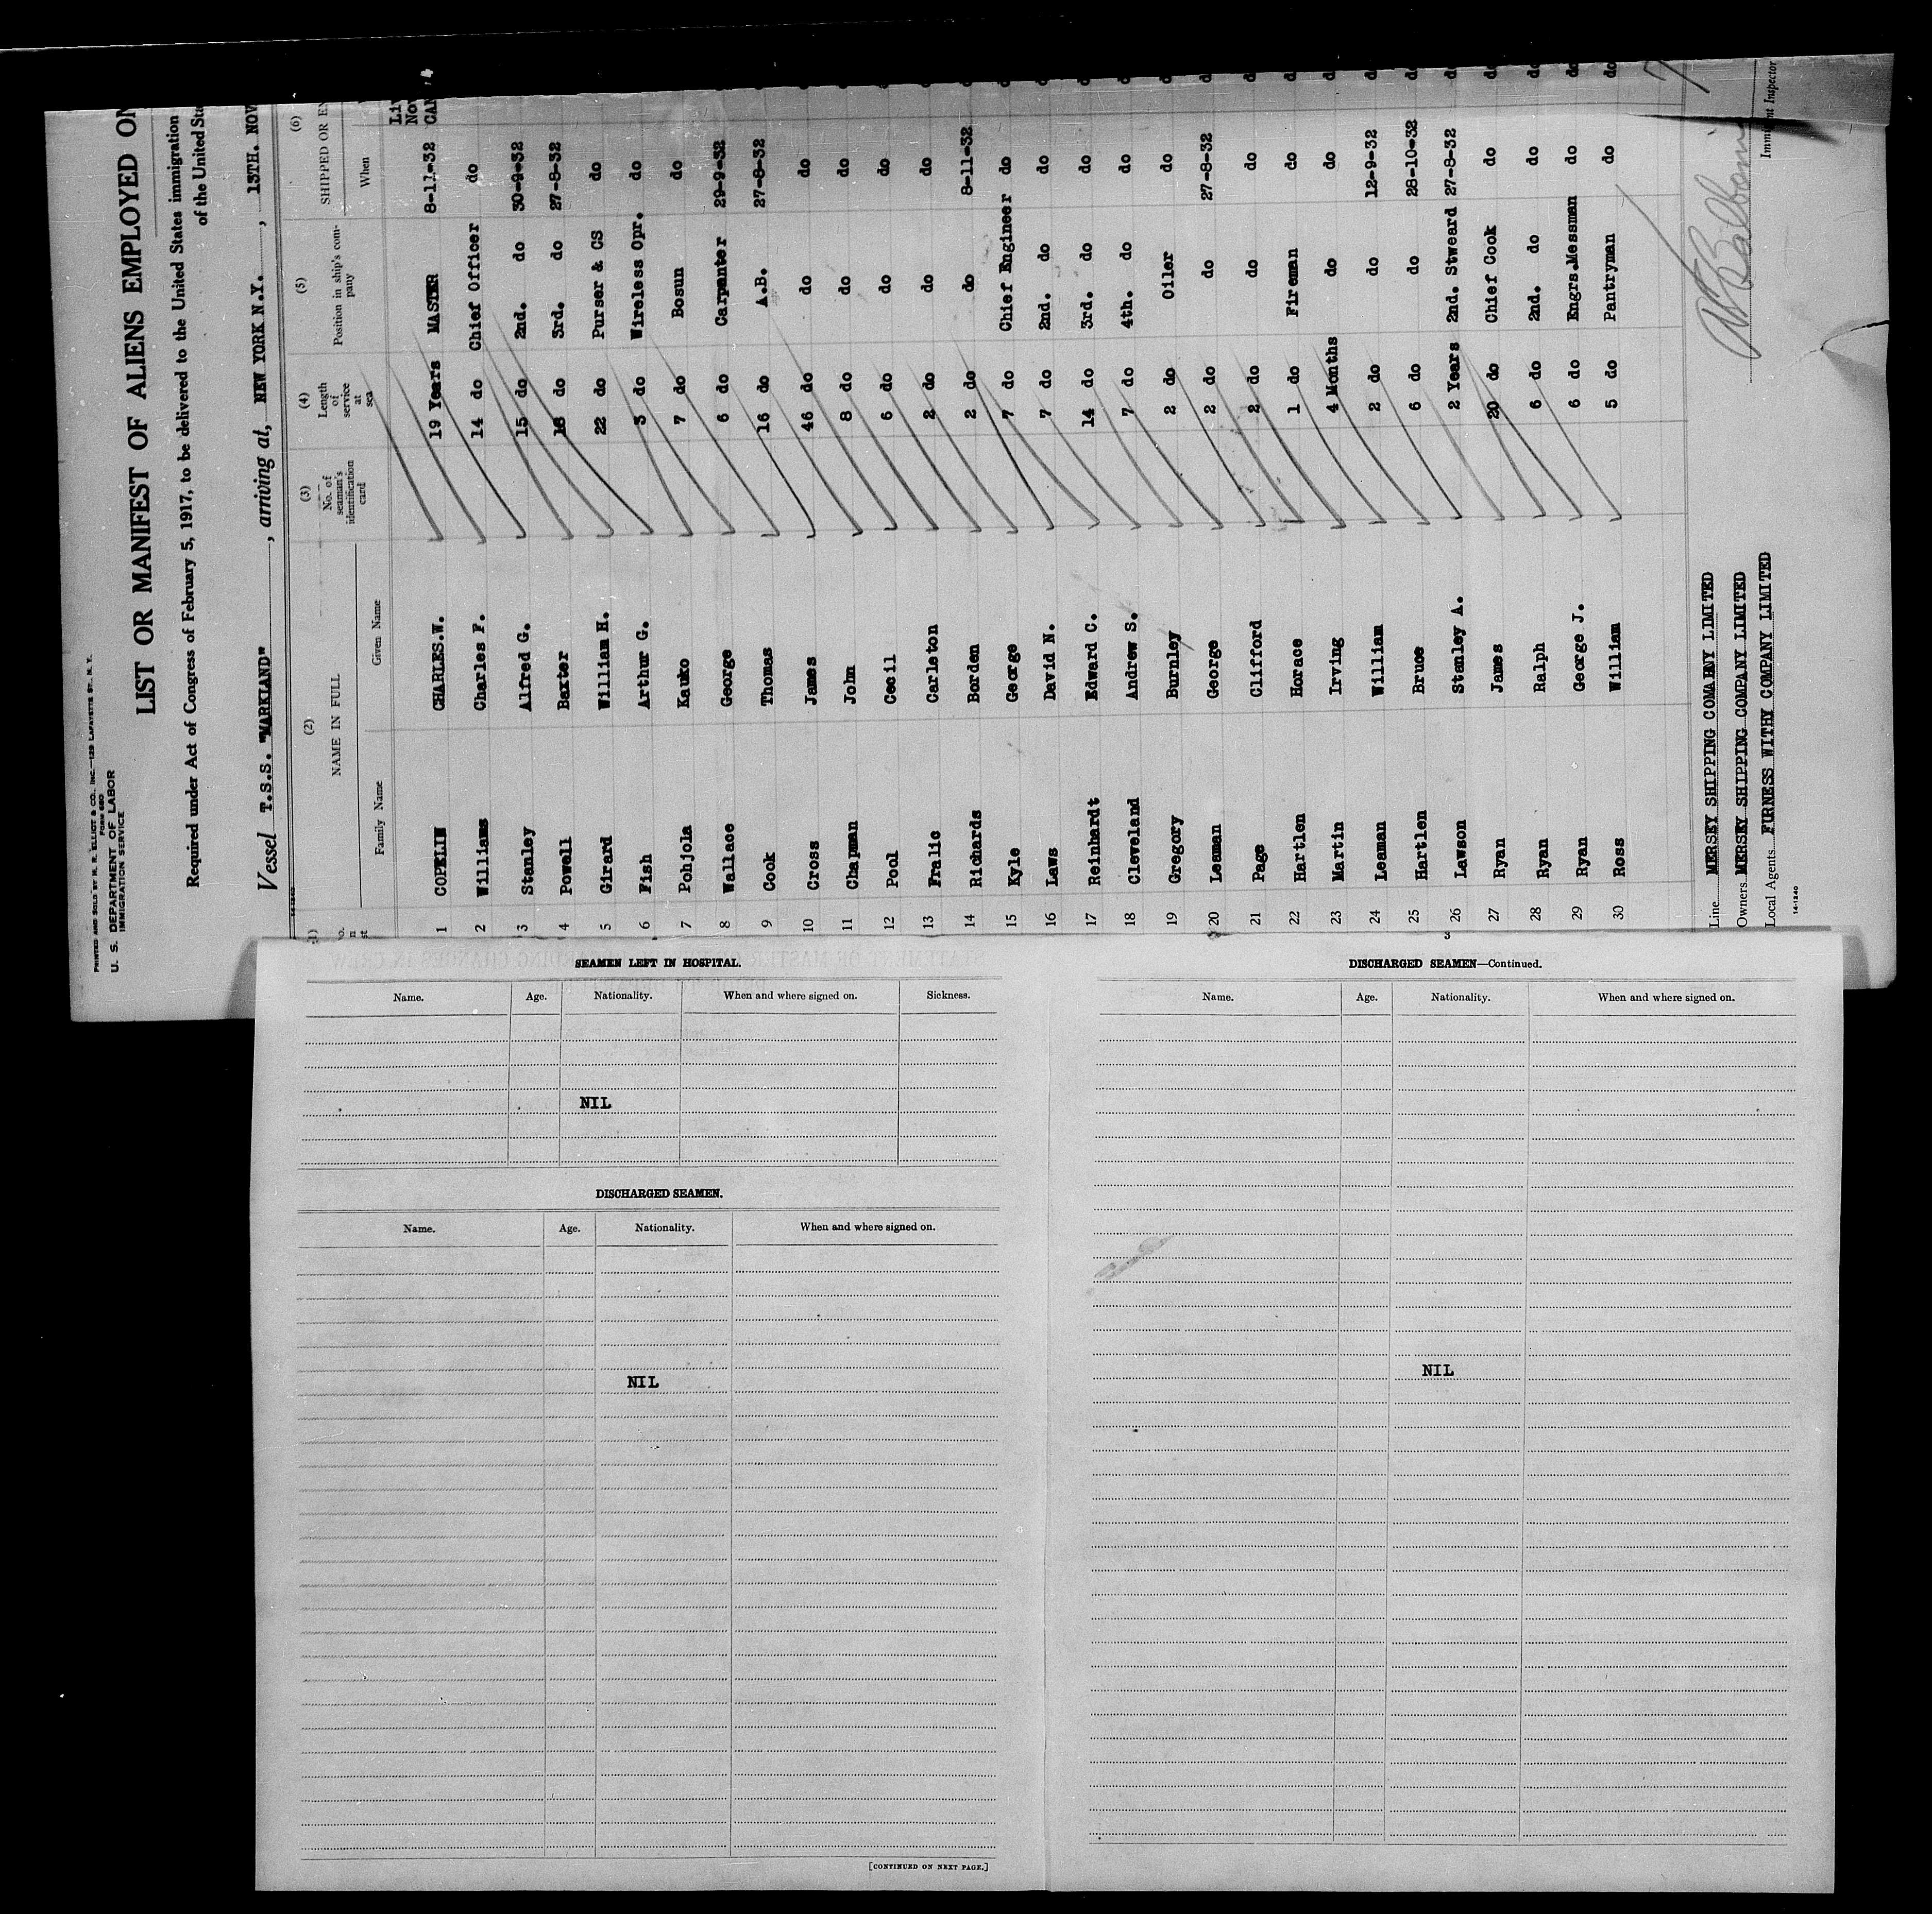 PRINTED AND SOLD BY M. R. ELLIOT & CO., INC.—129 LAFAYETTE ST., N. Y.
FORM 680
U. S. DEPARTMENT OF LABOR
IMMIGRATION SERVICE
LIST OR MANIFEST OF ALIENS EMPLOYED ON
Required under Act of Congress of February 5, 1917, to be delivered to the United States immigration
of the United Sta
Vessel T.S.S. "MARKLAND", arriving at, NEW YORK N.Y., 15TH. NOV
(2) (3) (4) (5) (6)
NAME IN FULL No. of seaman's identification card Length of service at sea Position in ship's company SHIPPED OR EN
Family Name Given Name When
1 COPELIN CHARLES.W. 19 Years MASTER 8-11-32
2 Williams Charles F. 14 do Chief Officer do
3 Stanley Alfred G. 15 do 2nd. do 30-9-32
4 Powell Baxter 18 do 3rd. do 27-8-32
5 Girard William H. 22 do Purser & CS do
6 Fish Arthur G. 3 do Wireless Opr. do
7 Pohjola Kauko 7 do Bosun do
8 Wallace George 6 do Carpenter 29-9-32
9 Cook Thomas 16 do A.B. 27-8-32
10 Cross James 46 do do do
11 Chapman John 8 do do do
12 Pool Cecil 6 do do do
13 Fralic Carleton 2 do do do
14 Richards Borden 2 do do 8-11-32
15 Kyle George 7 do Chief Engineer do do
16 Laws David N. 7 do 2nd. do do do
17 Reinhardt Edward C. 14 do 3rd. do do do
18 Cleveland Andrew S. 7 do 4th. do do do
19 Gregory Burnley 2 do Oiler do do
20 Leaman George 2 do do 27-8-32 d
21 Page Clifford 2 do do do d
22 Hartlen Horace 1 do Fireman do d
23 Martin Irving 4 Months do do d
24 Leaman William 2 do do 12-9-32 do
25 Hartlen Bruce 6 do do 28-10-32 do
26 Lawson Stanley A. 2 Years 2nd. Stweard 27-8-32 do
27 Ryan James 20 do Chief Cook do do
28 Ryan Ralph 6 do 2nd. do do do
29 Ryan George J. 6 do Engrs.Messman do do
30 Ross William 5 do Pantryman do do
Line MERSEY SHIPPING COMAPNY LIMITED
Owners MERSEY SHIPPING COMPANY LIMITED
Local Agents FURNESS WITHY COMPANY LIMITED
14-1240
Immigrant Inspector
SEAMEN LEFT IN HOSPITAL.
Name. Age. Nationality. When and where signed on. Sickness.
NIL
DISCHARGED SEAMEN.
Name. Age. Nationality. When and where signed on.
NIL
[CONTINUED ON NEXT PAGE.]
DISCHARGED SEAMEN—Continued.
Name. Age. Nationality. When and where signed on.
NIL